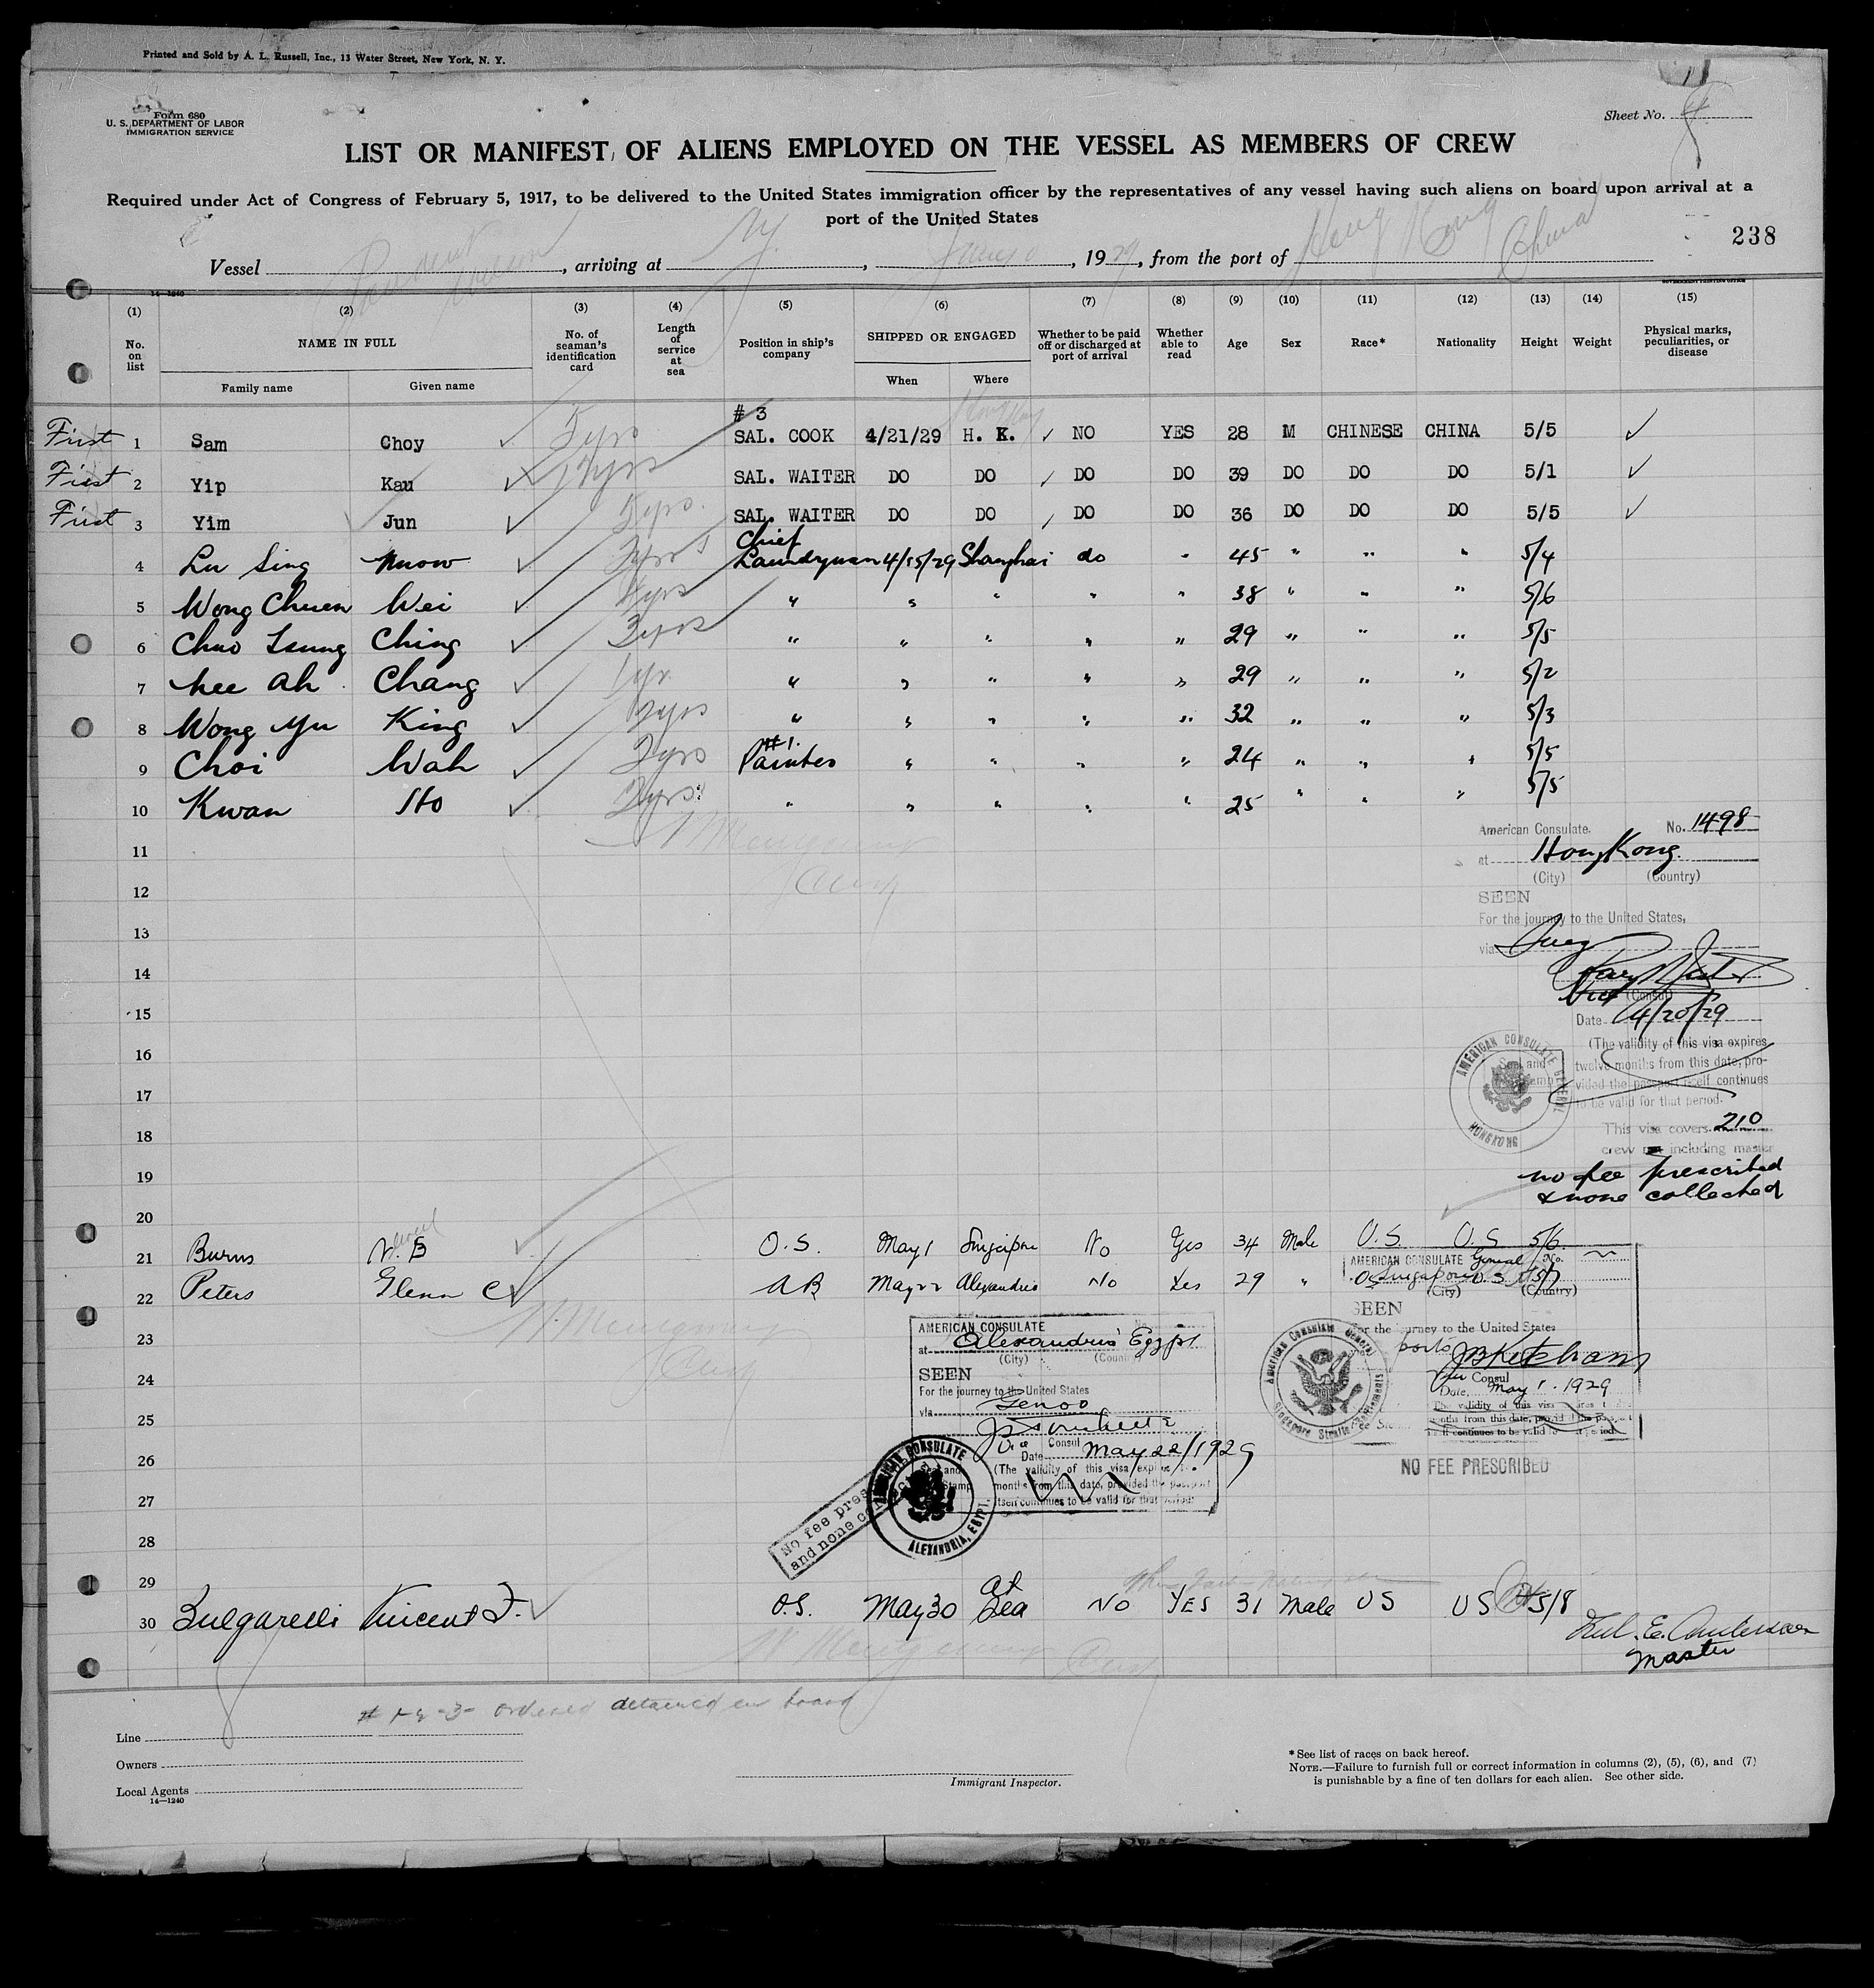 Printed and Sold by A. L. Russell, Inc., 13 Water Street, New York, N. Y.
Form 680
U. S. DEPARTMENT OF LABOR
IMMIGRATION SERVICE
Sheet No.
LIST OR MANIFEST OF ALIENS EMPLOYED ON THE VESSEL AS MEMBERS OF CREW
Required under Act of Congress of February 5, 1917, to be delivered to the United States immigration officer by the representatives of any vessel having such aliens on board upon arrival at a
port of the United States
238
Vessel , arriving at N.Y. , , 1929, from the port of Hong Kong China
14—1240
(1) (2) (3) (4) (5) (6) (7) (8) (9) (10) (11) (12) (13) (14) (15)
No. on list NAME IN FULL No. of seaman's identification card Length of service at sea Position in ship's company SHIPPED OR ENGAGED Whether to be paid off or discharged at port of arrival Whether able to read Age Sex Race* Nationality Height Weight Physical marks, peculiarities, or disease
Family name Given name When Where
# 3
First 1 Sam Choy SAL. COOK 4/21/29 H. K. NO YES 28 M CHINESE CHINA 5/5
First 2 Yip Kau SAL. WAITER DO DO DO DO 39 DO DO DO 5/1
First 3 Yim Jun 5yrs. SAL. WAITER DO DO DO DO 36 DO DO DO 5/5
Chief
4 Lu Sing Mow Laundryman 4/15/29 Shanghai do " 45 " " " 5/4
5 Wong Chuen Wei 4yrs " " " " " 38 " " " 5/6
6 Chao Tsung Ching 3yrs " " " " " 29 " " " 5/5
7 Lee Ah Chang 1yr. " " " " " 29 " " " 5/2
8 Wong Yu King " " " " " 32 " " " 5/3
#1.
9 Choi Wah Painter " " " " 24 " " " 5/5
10 Kwan Ho " " " " " 25 " " " 5/5
11
12
13
14
15
16
17
18
19
20
American Consulate. No. 1498
at Hong Kong
(City) (Country)
SEEN
For the journey to the United States,
via Suez
Vice (Consul)
Date 4/20/29
(The validity of this visa expires
twelve months from this date, pro-
vided the passport itself continues
to be valid for that period.
AMERICAN CONSULATE GENERAL
HONGKONG
This visa covers 210
crew including master
no fee prescribed
& none collected
21 Burns N. B O.S. May 1 Singapore No Yes 34 Male U.S. U.S 5/6
22 Peters Glenn C AB May 22 Alexandria No Yes 29 " U.S U.S 5/7
23
24
25
26
27
28
29
AMERICAN CONSULATE General No.
Singapore
(City) (Country)
SEEN
For the journey to the United States
ports
Vice Consul
Date. May 1. 1929
The validity of this visa
months from this date, provided the
itself continues to be valid
American Consulate General
Singapore Straits Settlements
NO FEE PRESCRIBED
AMERICAN CONSULATE No.
at Alexandria Egypt
(City) (Country)
SEEN
For the journey to the United States
via Genoa
Vice Consul
Date May 22/1929
(The validity of this visa expires
months from this date, provided the passport
itself continues to be valid for that period)
AMERICAN CONSULATE
ALEXANDRIA, EGYPT.
No fee pres
and none c
30 Bulgarelli Vincent F. O.S. May 30 at Sea No YES 31 Male US US 5/8
E. Andersen
Master
# 1-2-3- ordered detained on board
Line
Owners
Local Agents
14—1240
Immigrant Inspector.
*See list of races on back hereof.
NOTE.—Failure to furnish full or correct information in columns (2), (5), (6), and (7)
is punishable by a fine of ten dollars for each alien. See other side.